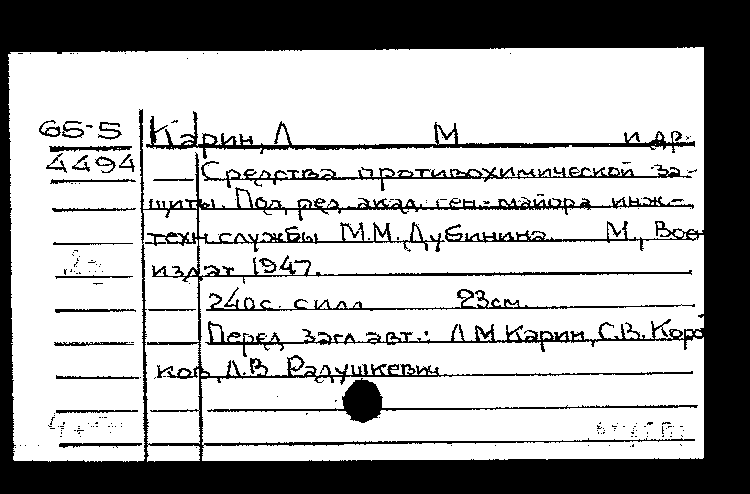 65-5 Карин, Л М и др.
4494 Средства противохимической за-
щиты. Под ред. акад. ген.-майора инж-
техн. службы М.М. Дубинина. М., Вое
издат, 1947.
240 с. с илл. 23 см.
Перед загл авт.: Л М Карин, С.В. Коро
ков, Л.В. Радушкевич